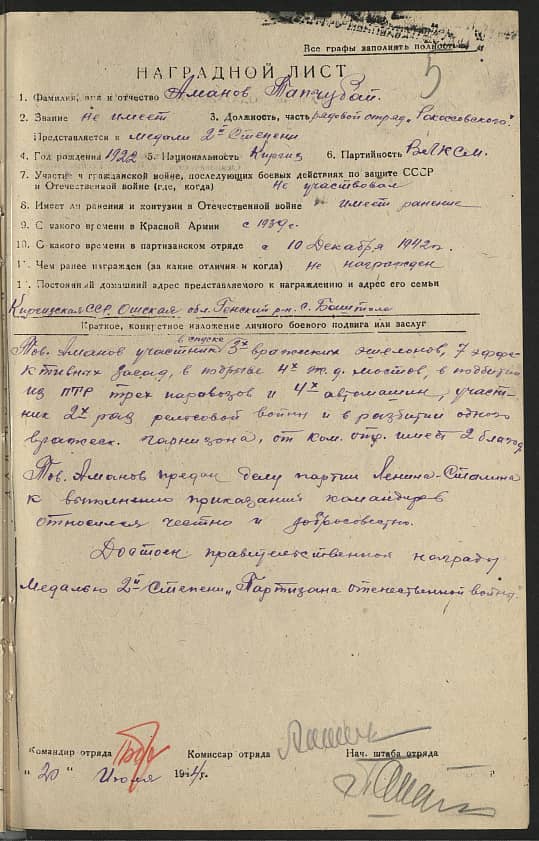 Все графы заполнять полностью
5
НАГРАДНОЙ ЛИСТ
1. Фамилия, имя и отчество Аманов Тапчубай.
2. Звание Не имеет 3. Должность, часть рядовой отряд. "Рокоссовского".
Представляется к медали 2й Степени
4. Год рождения 1922 5. Национальность Киргиз 6. Партийность ВЛКСМ.
7. Участие в гражданской войне, последующих боевых действиях по защите СССР
и Отечественной войне (где, когда) Не участвовал
8. Имеет ли ранения и контузии в Отечественной войне имеет ранение
9. С какого времени в Красной Армии с 1939г.
10. С какого времени в партизанском отряде с 10 Декабря 1942г.
11. Чем ранее награжден (за какие отличия и когда) Не награжден
12. Постоянный домашний адрес представляемого к награждению и адрес его семьи
Киргизская ССР, Ошская обл. р-н. с.
Краткое, конкретное изложение личного боевого подвига или заслуг
Тов. Аманов участник в спуске 3х вражеских эшелонов, 7 эффе-
ктивных засад, в подрыве 4х ж.д. мостов, в подбитии
из ПТР трех паровозов и 4х автомашин, участ-
ник 2х раз рельсовой войны и в разбитии одного
вражеск. гарнизона, от ком. отр. имеет 2 благод.
Тов. Аманов предан делу партии Ленина-Сталина
к выполнению приказаний командиров
относился честно и добросовестно.
Достоин правительственной награды
Медалью 2й Степени "Партизана отечественной войны"
Командир отряда Комиссар отряда Нач. штаба отряда
"20" Июля 1944г.